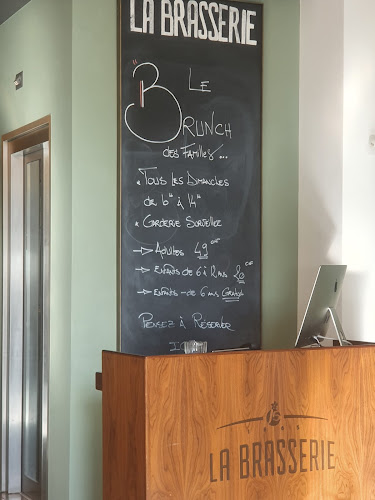 LA BRASSERIE
"B
LE
BRUNCH
des Familles...
• Tous les Dimanches
• Garderie Surveillée
→ Adultes 49 CHF
→ Enfants de 6 à 12 ans 20 CHF
→ Enfants - de 6 ans Gratuits
Pensez à Réserver
LA BRASSERIE